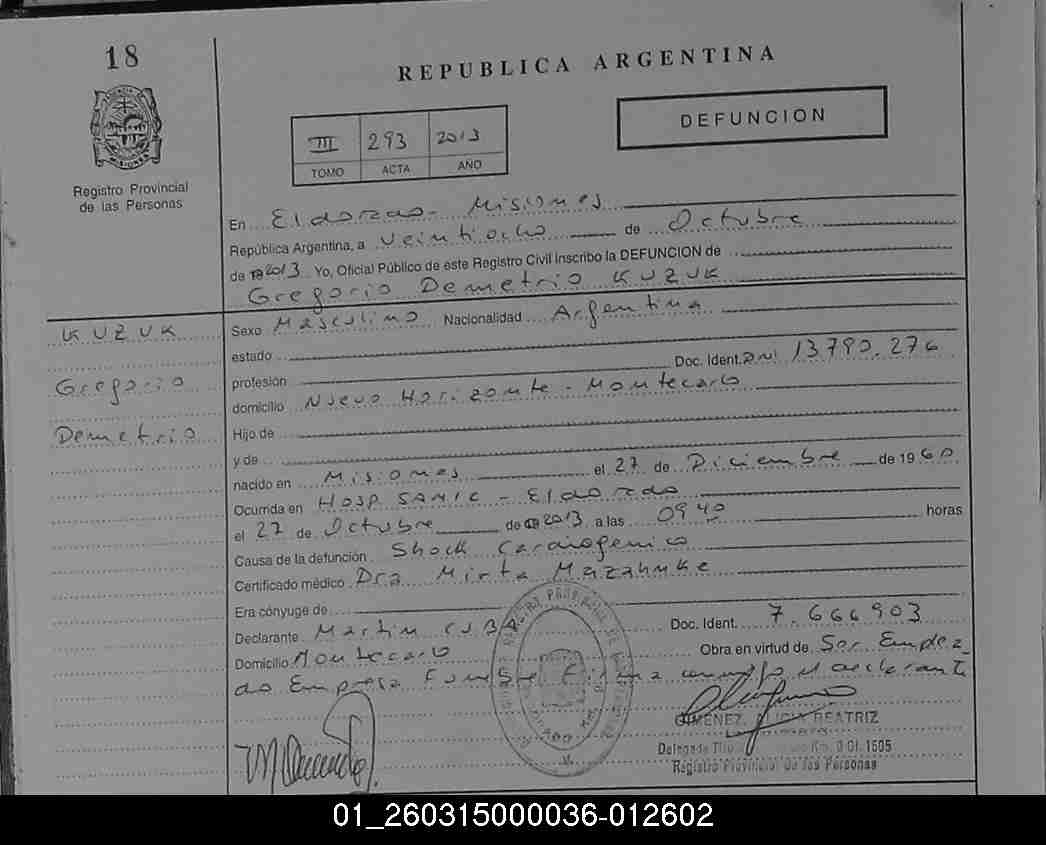 18
REPUBLICA ARGENTINA
DEFUNCION
III 293 2013
TOMO ACTA AÑO
Registro Provincial
de las Personas
En Eldorado - Misiones
República Argentina, a Veintiocho de Octubre
de 2013 Yo, Oficial Público de este Registro Civil inscribo la DEFUNCION de
Gregorio Demetrio KUZUK
KUZUK
Gregorio
Demetrio
Sexo Masculino Nacionalidad Argentina
estado
profesión Doc. Ident. DNI 13790.276
domicilio Nuevo Horizonte - Montecarlo
Hijo de
y de
nacido en Misiones el 27 de Diciembre de 1960
Ocurrida en HOSP SAMIC - Eldorado
el 27 de Octubre de 2013 a las 0940 horas
Causa de la defunción Shock Cardiogenico
Certificado médico Dra Mirta
Era cónyuge de
Declarante Martin Doc. Ident. 7.666903
Domicilio Montecarlo Obra en virtud de Ser Emplea_
do Empresa Funebre Firma conmigo el declarante
GIMENEZ, ALICIA BEATRIZ
Registro Provincial de las Personas
01_260315000036-012602